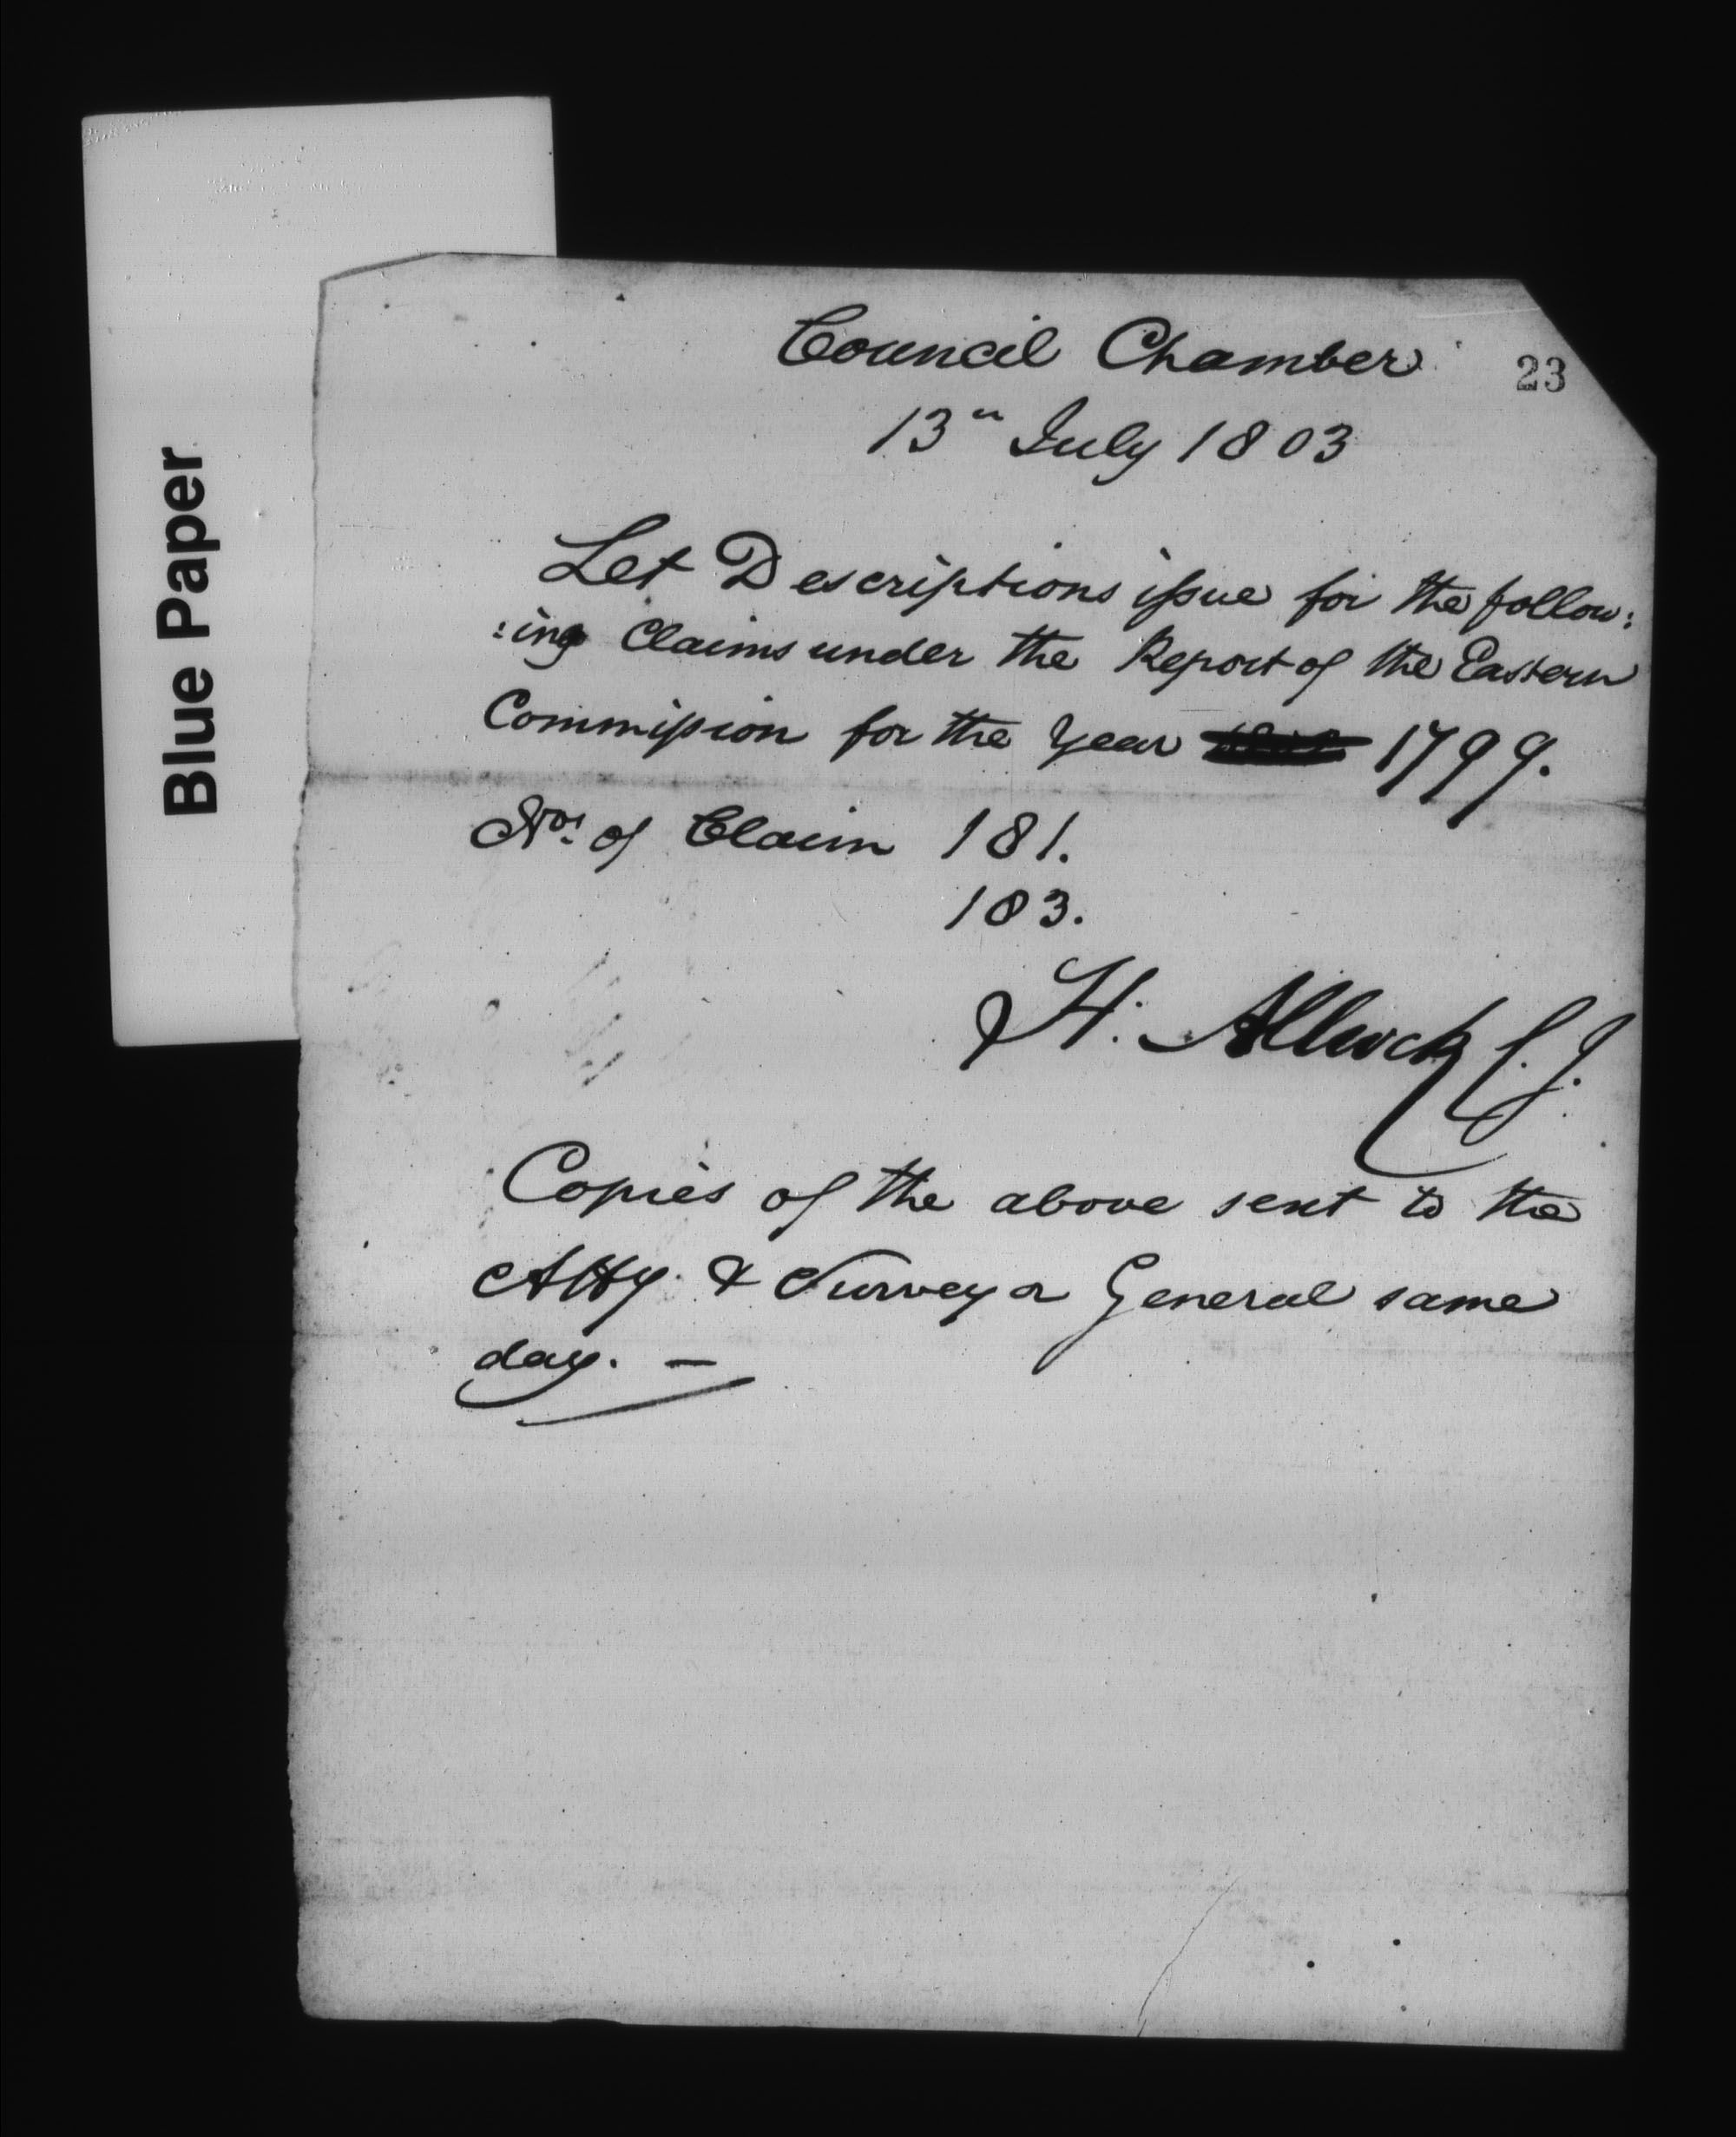 Blue Paper
23
Council Chamber
13th July 1803
Let Descriptions issue for the follow:
:ing Claims under the Report of the Eastern
Commission for the Year 1799.
Nos. of Claim 181.
183.
H. Allcock C.J.
Copies of the above sent to the
Atty. & Surveyor General same
day. —